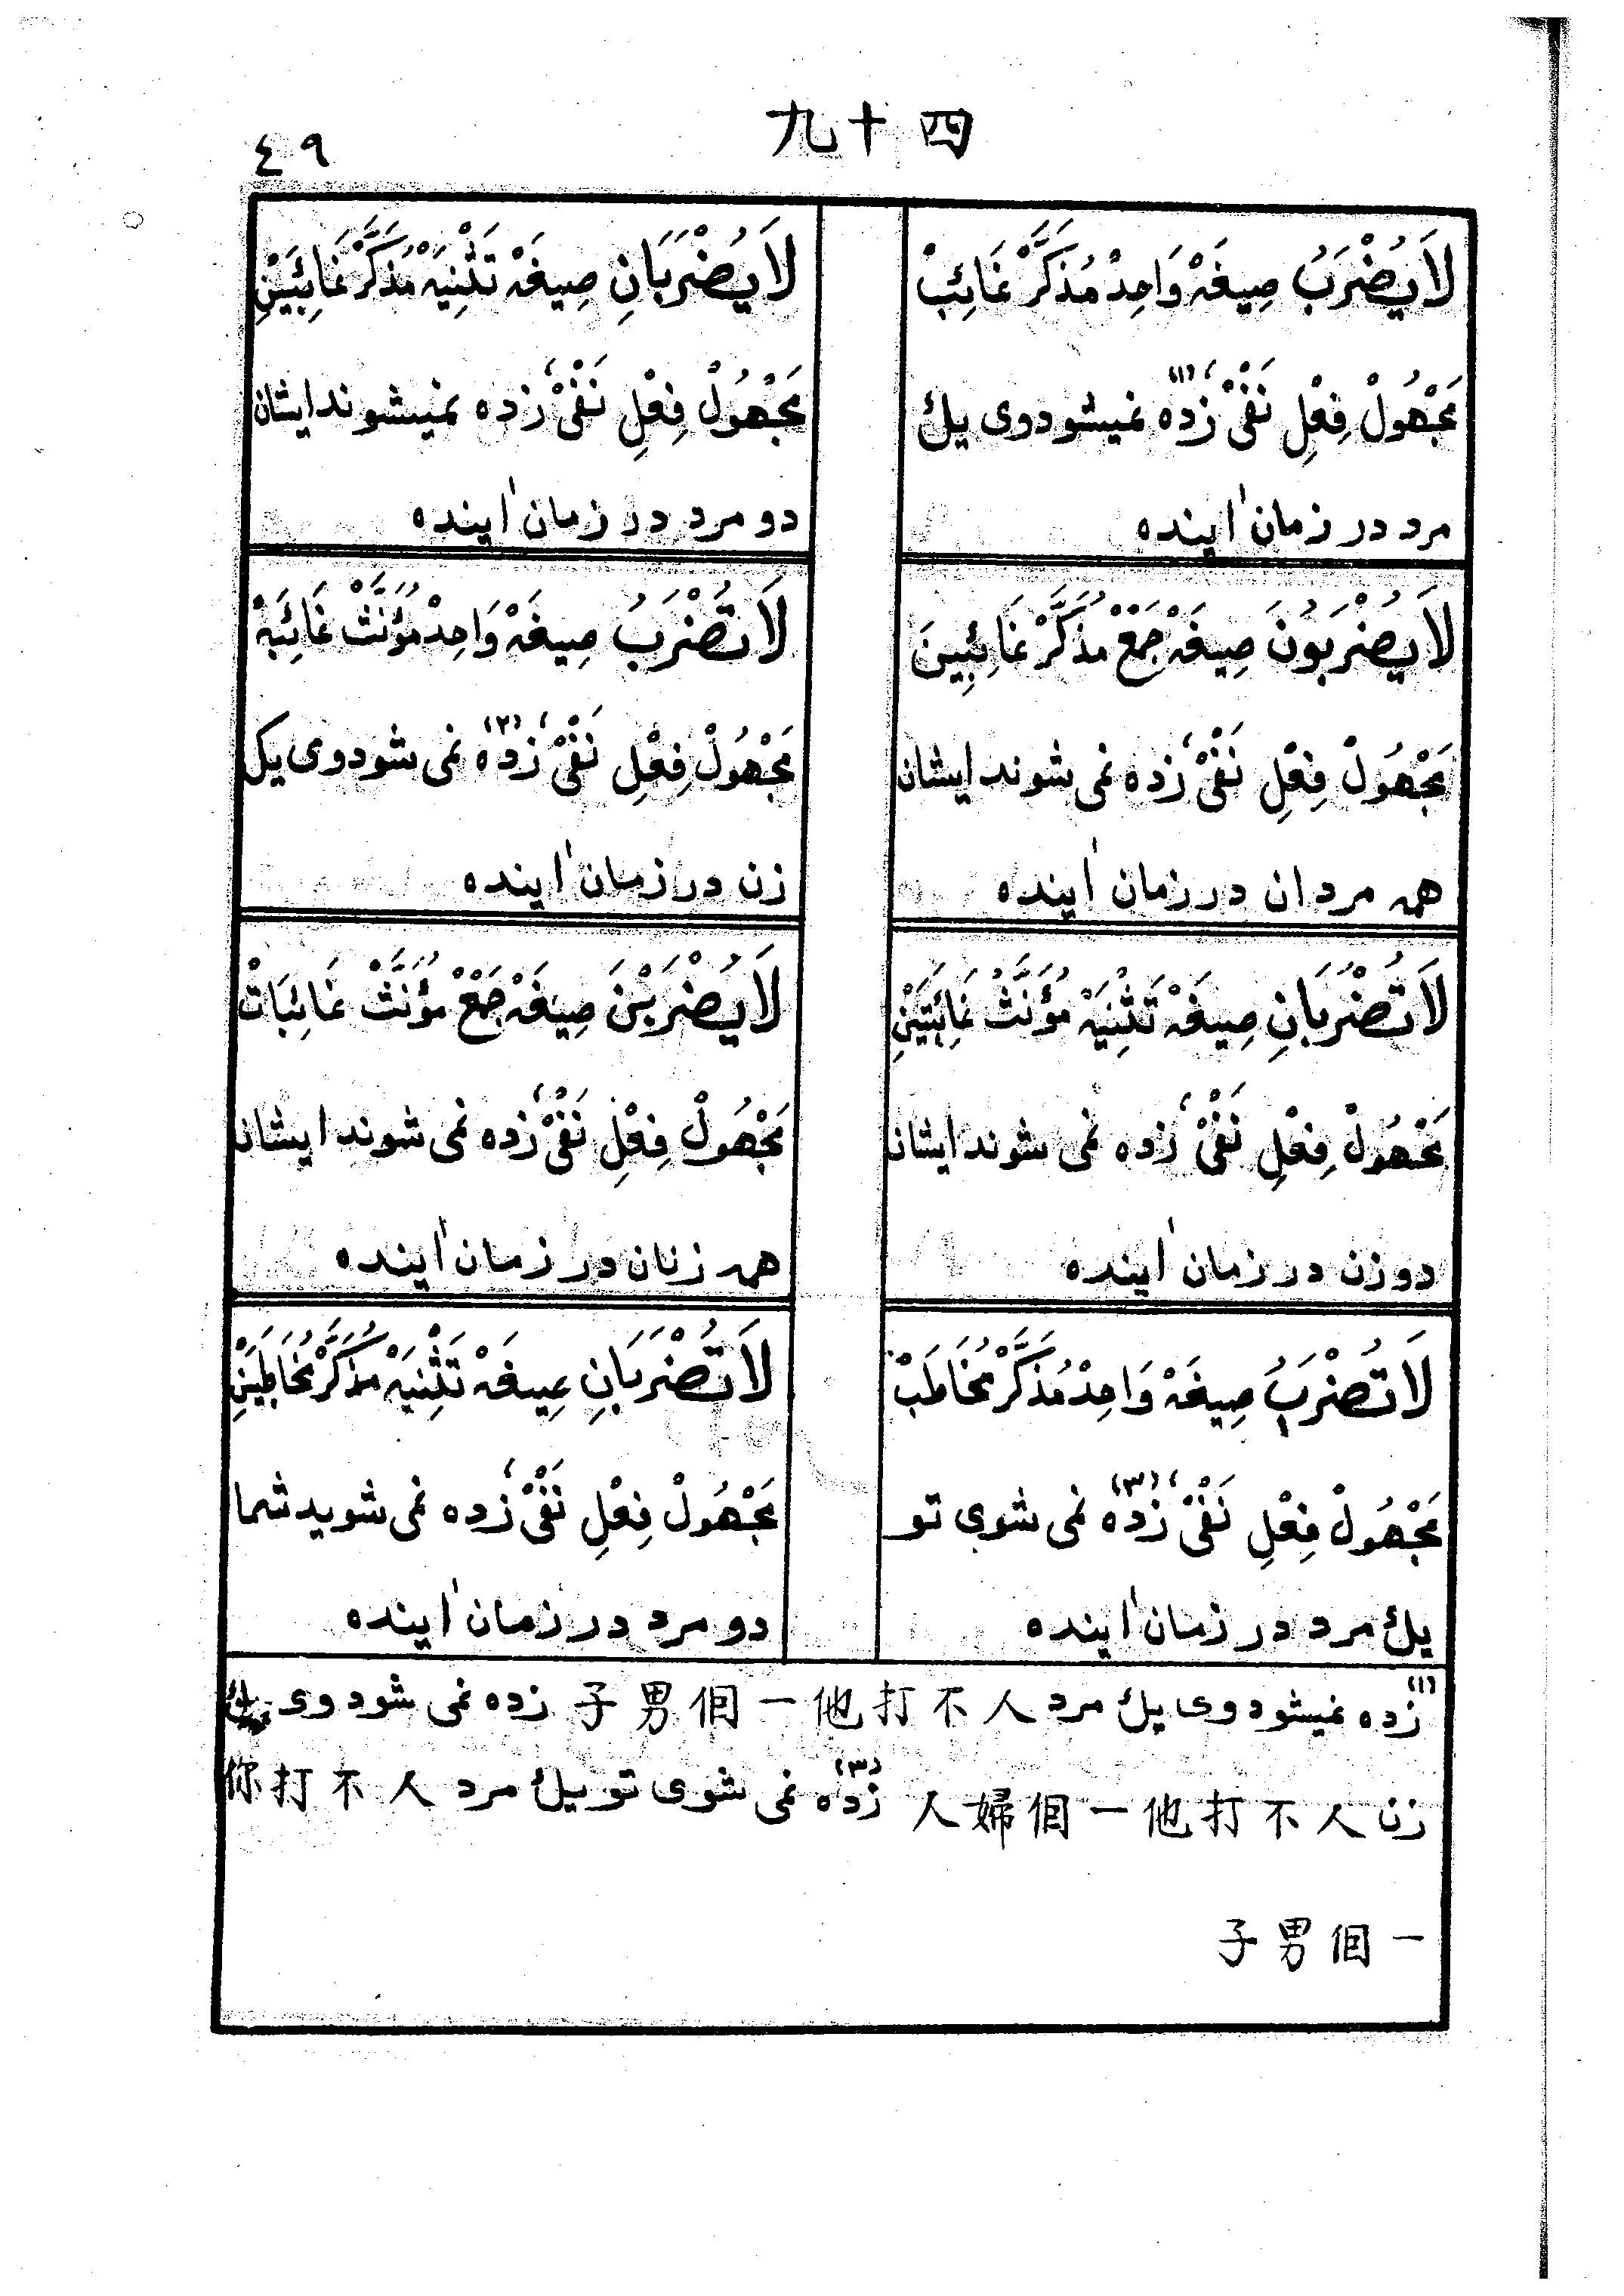 四十九
٤٩
لَا يُضْرَبُ صِيغَهْ وَاحِدْ مُذَكَّرْ غَائِبْ
مَجْهُولْ فِعْلِ نَفْیْ زده (١) نمیشود وی یك
مرد در زمان اینده
لَا يُضْرَبَانِ صِيغَهْ تَثْنِيَهْ مُذَكَّرْ غَائِبَيْنِ
مَجْهُولْ فِعْلِ نَفْیْ زده نمیشوند ایشان
دو مرد در زمان اینده
لَا يُضْرَبُونَ صِيغَهْ جَمْعْ مُذَكَّرْ غَائِبِينَ
مَجْهُولْ فِعْلِ نَفْیْ زده نمی شوند ایشان
همه مردان در زمان اینده
لَا تُضْرَبُ صِيغَهْ وَاحِدْ مُؤَنَّثْ غَائِبَهْ
مَجْهُولْ فِعْلِ نَفْیْ زده (٢) نمی شود وی یك
زن در زمان اینده
لَا تُضْرَبَانِ صِيغَهْ تَثْنِيَهْ مُؤَنَّثْ غَائِبَتَيْنِ
مَجْهُولْ فِعْلِ نَفْیْ زده نمی شوند ایشان
دو زن در زمان اینده
لَا يُضْرَبْنَ صِيغَهْ جَمْعْ مُؤَنَّثْ غَائِبَاتْ
مَجْهُولْ فِعْلِ نَفْیْ زده نمی شوند ایشان
همه زنان در زمان اینده
لَا تُضْرَبُ صِيغَهْ وَاحِدْ مُذَكَّرْ مُخَاطَبْ
مَجْهُولْ فِعْلِ نَفْیْ زده (٣) نمی شوی تو
یك مرد در زمان اینده
لَا تُضْرَبَانِ صِيغَهْ تَثْنِيَهْ مُذَكَّرْ مُخَاطَبَيْنِ
مَجْهُولْ فِعْلِ نَفْیْ زده نمی شوید شما
دو مرد در زمان اینده
(١) زده نمیشود وی یك مرد 人不打他一個男子 زده نمی شود وی یك
زن 人不打他一個婦人 (٣) زده نمی شوی تو یك مرد 人不打你
一個男子